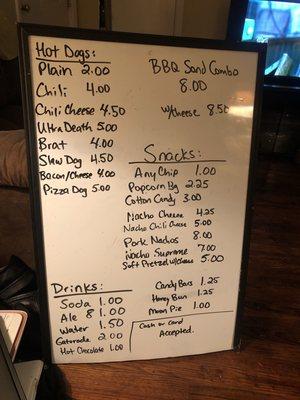 Hot Dogs:
Plain 2.00
Chili 4.00
Chili Cheese 4.50
Ultra Death 5.00
Brat 4.00
Slaw Dog 4.50
Bacon/Cheese 4.00
Pizza Dog 5.00
Drinks:
Soda 1.00
Ale 8 1.00
Water 1.50
Gatorade 2.00
Hot Chocolate 1.00
BBQ Sand Combo
8.00
w/cheese 8.50
Snacks:
Any Chip 1.00
Popcorn Bg 2.25
Cotton Candy 3.00
Nacho Cheese 4.25
Nacho Chili Cheese 5.00
Pork Nachos 8.00
Nacho Supreme 7.00
Soft Pretzel w/Cheese 5.00
Candy Bars 1.25
Honey Bun 1.25
Moon Pie 1.00
Cash or Card
Accepted.